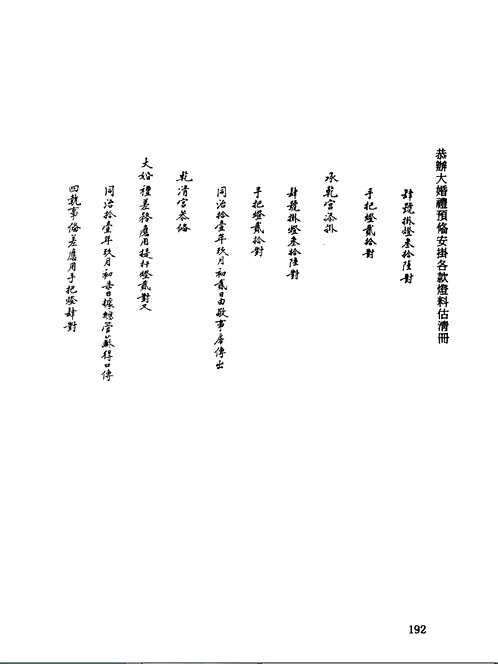 恭辦大婚禮預備安掛各款燈料估清冊
肆號掛燈叁拾陸對
手把燈貳拾對
承乾宮添掛
肆號掛燈叁拾陸對
手把燈貳拾對
同治拾壹年玖月初貳日由敬事房傳出
乾清宮恭備
大婚禮差務應用提杆燈貳對又
同治拾壹年玖月初 日據總管蘇得口傳
四執事備差應用手把燈肆對
192